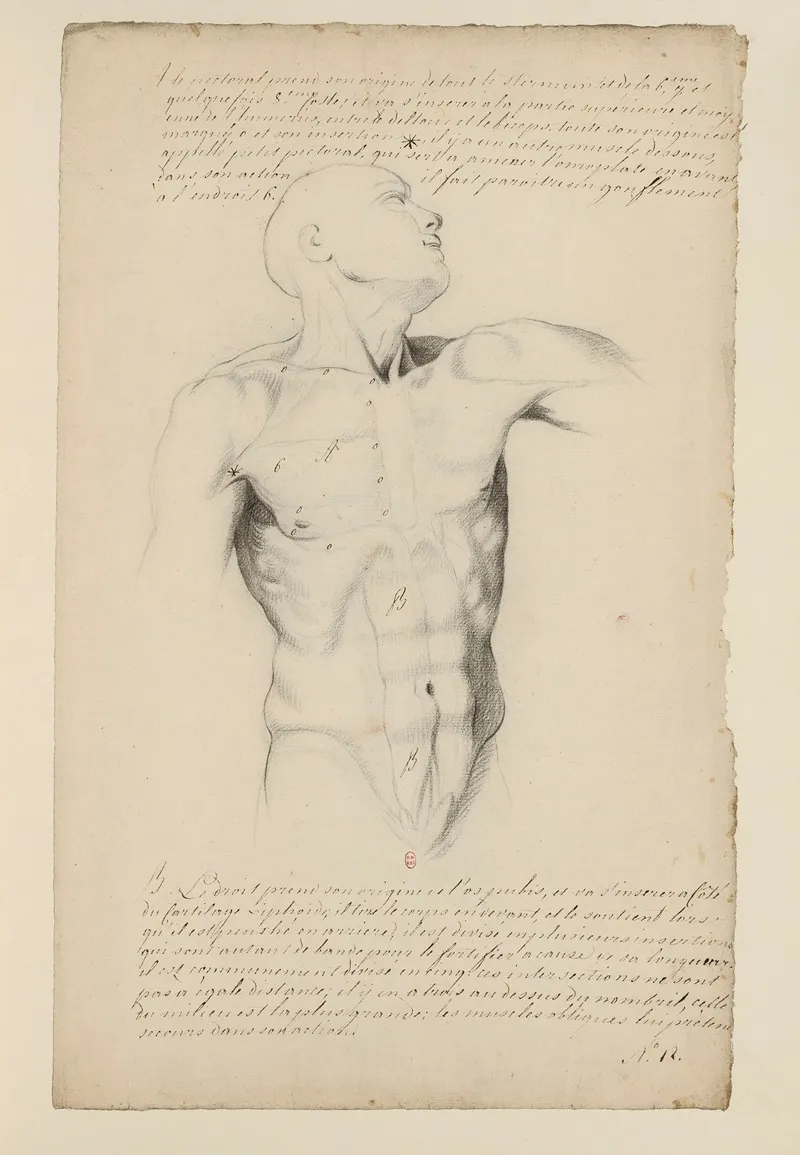 A le pectoral prend son origine de tout le sternum et de la 6, 7.eme et
quelque fois 8.eme coste; il va s'inserer a la partie superieure et moy-
enne de l'humerus, entre le deltoide et le biceps, toute son origine est
marqué o et son insertion * il y a un autre muscle dessous,
appellé petit pectoral, qui sert a amener l'omoplate en avant
dans son action il fait paroitre un gonflement
a l'endroit 6.
6 A
B
B
B Le droit prend son origine de l'os pubis, et va s'inserer a Côté
du Cartilage Ziphoide, il tire le corps en devant, et le soutient lors-
qu'il est penshé en arriere, il est divisé en plusieurs insertions
qui sont autant de bande pour le fortifier a cause de sa longueur,
il est communement divisé en cinq. ces intersections ne sont
pas a égale distance; il y en a trois au dessus du nombril, celle
du milieu est la plus grande; les muscles obliques lui prêtent
secours dans son action.
N.o 12.